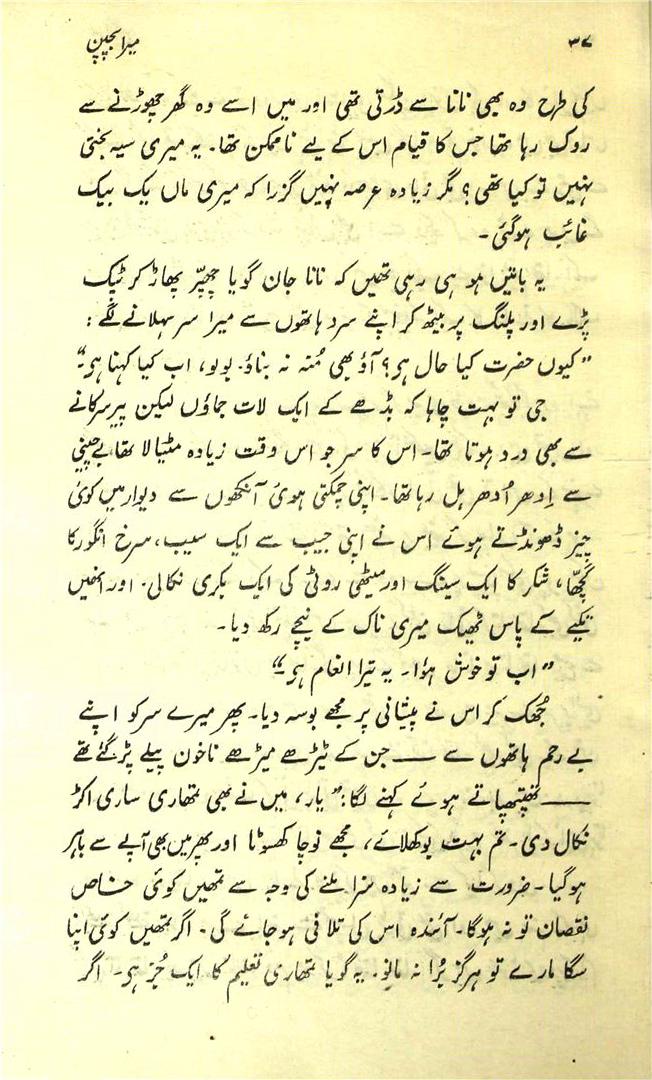 ۳۷ میرا بچپن
کی طرح وہ بھی نانا سے ڈرتی تھی اور میں اسے وہ گھر چھوڑنے سے
روک رہا تھا جس کا قیام اس کے لیے ناممکن تھا۔ یہ میری سیہ بختی
نہیں تو کیا تھی؟ مگر زیادہ عرصہ نہیں گزرا کہ میری ماں یک بیک
غائب ہوگئی۔
یہ باتیں ہو ہی رہی تھیں کہ نانا جان گویا چھپّر پھاڑ کر ٹپک
پڑے اور پلنگ پر بیٹھ کر اپنے سرد ہاتھوں سے میرا سر سہلانے لگے:
”کیوں حضرت کیا حال ہی؟ آؤ بھی مُنہ نہ بناؤ۔ بولو، اب کیا کہنا ہی۔“
جی تو بہت چاہا کہ بڈھے کے ایک لات جماؤں لیکن پیر سرکانے
سے بھی درد ہوتا تھا۔ اس کا سر جو اس وقت زیادہ مٹیالا تھا بے چینی
سے اِدھر اُدھر ہل رہا تھا۔ اپنی چمکتی ہوئی آنکھوں سے دیوار میں کوئی
چیز ڈھونڈتے ہوئے اس نے اپنی جیب سے ایک سیب، سرخ انگور کا
گچھّا، شکر کا ایک سینگ اور میٹھی روٹی کی ایک بکری نکالی۔ اور انھیں
تکیے کے پاس ٹھیک میری ناک کے نیچے رکھ دیا۔
”اب تو خوش ہؤا۔ یہ تیرا انعام ہی۔“
جُھک کر اس نے پیشانی پر مجھے بوسہ دیا۔ پھر میرے سر کو اپنے
بے رحم ہاتھوں سے —— جن کے ٹیڑھے میڑھے ناخون پیلے پڑ گئے تھے
—— تھپتھپاتے ہوئے کہنے لگا: ”یار، میں نے بھی تمھاری ساری اکڑ
نکال دی۔ تم بہت بوکھلائے، مجھے نوچا کھسوٹا اور پھر میں بھی آپے سے باہر
ہوگیا۔ ضرورت سے زیادہ سزا ملنے کی وجہ سے تمھیں کوئی خاص
نقصان تو نہ ہوگا۔ آئندہ اس کی تلافی ہو جائے گی۔ اگر تمھیں کوئی اپنا
سگا مارے تو ہرگز بُرا نہ مانو۔ یہ گویا تمھاری تعلیم کا ایک جُز ہی۔ اگر